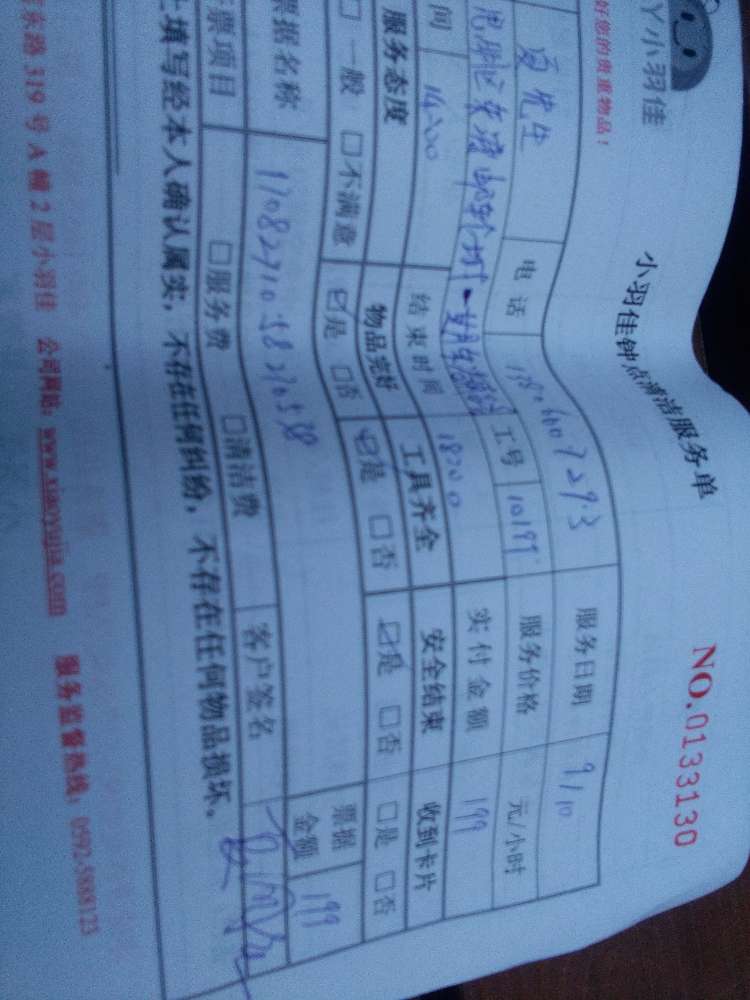 YY小羽佳
好您的贵重物品！
小羽佳钟点清洁服务单
NO.0133130
夏先生 电话 服务日期 9/10
工号 10199 服务价格 元/小时
间 14:00 结束时间 18:00 实付金额 199
服务态度 物品完好 工具齐全 安全结束 收到卡片
□一般 □不满意 ☑是 □否 ☑是 □否 ☑是 □否 □是 □否
票据名称 票据金额 199
票项目 □服务费 □清洁费 客户签名
上填写经本人确认属实，不存在任何纠纷，不存在任何物品损坏。
东路319号A幢2层小羽佳 公司网站：www.xiaoyujia.com 服务监督热线：0592-5888123